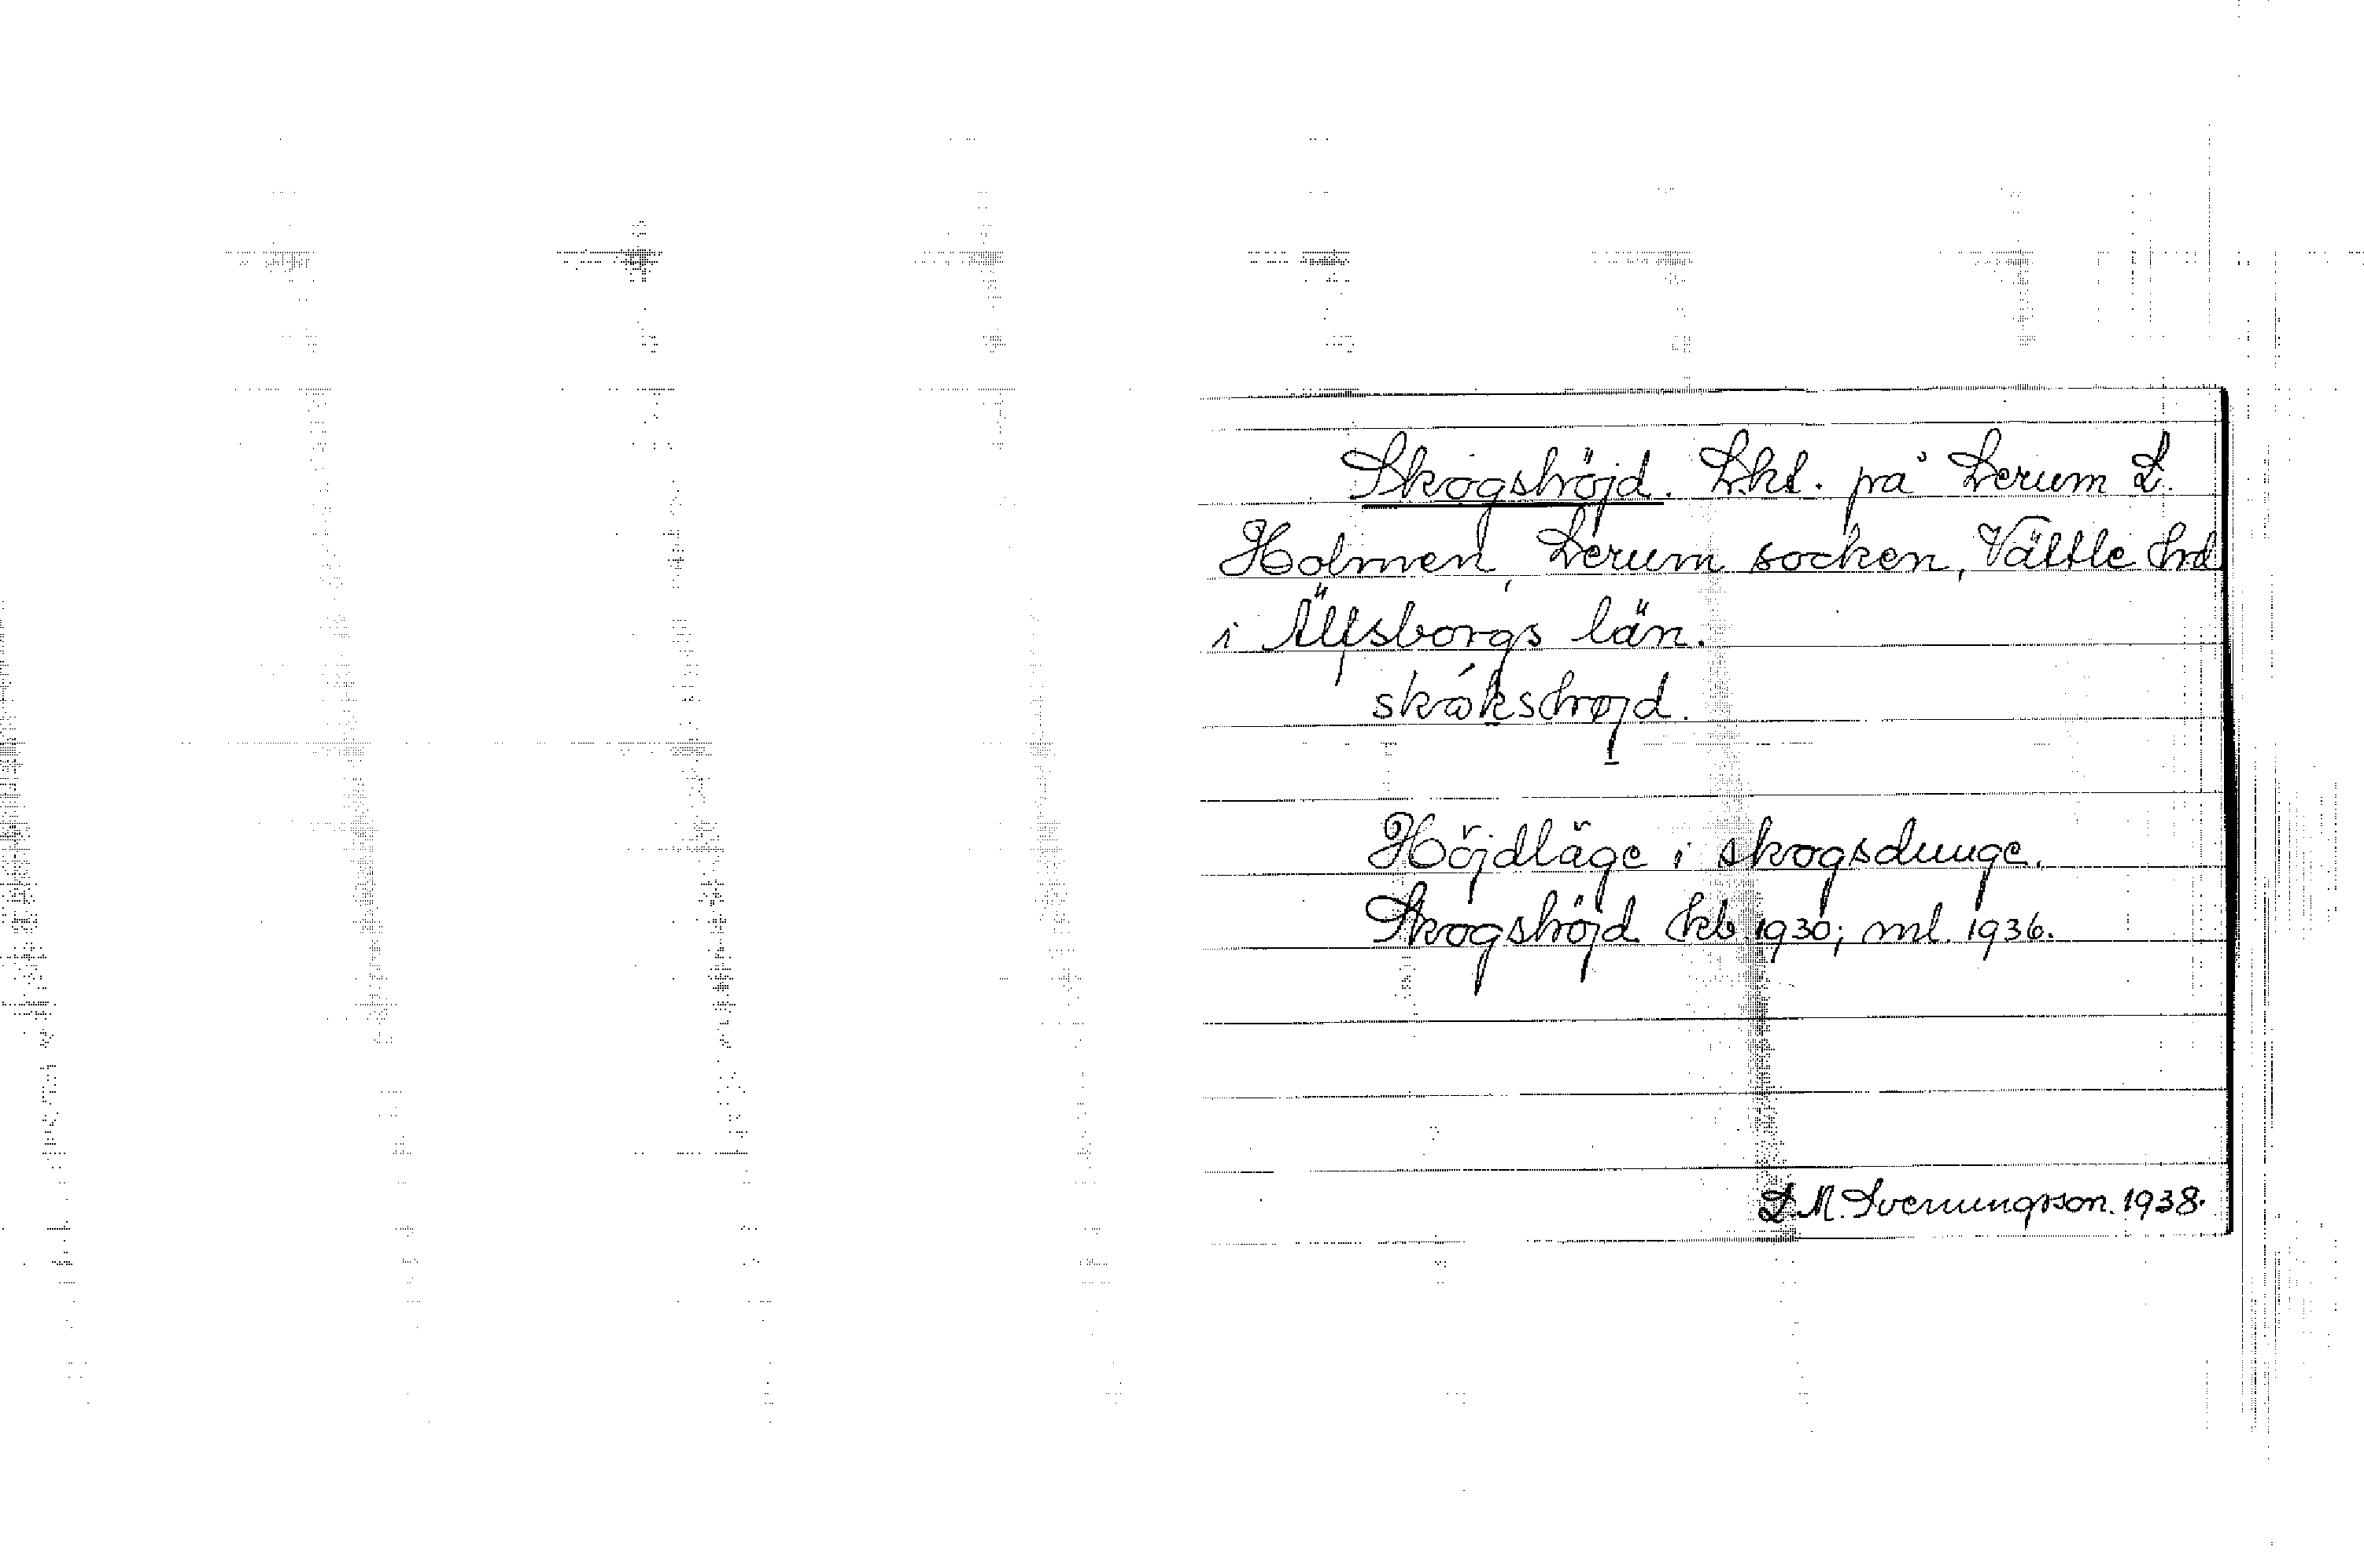 Skogshöjd. Lht. på Lerum L.
Holmen, Lerum socken, Vättle hd
i Älfsborgs län.
skókshøjd.
Höjdläge i skogsdunge.
Skogshöjd kb 1930; ml. 1936.
S. M. Svenungsson. 1938.